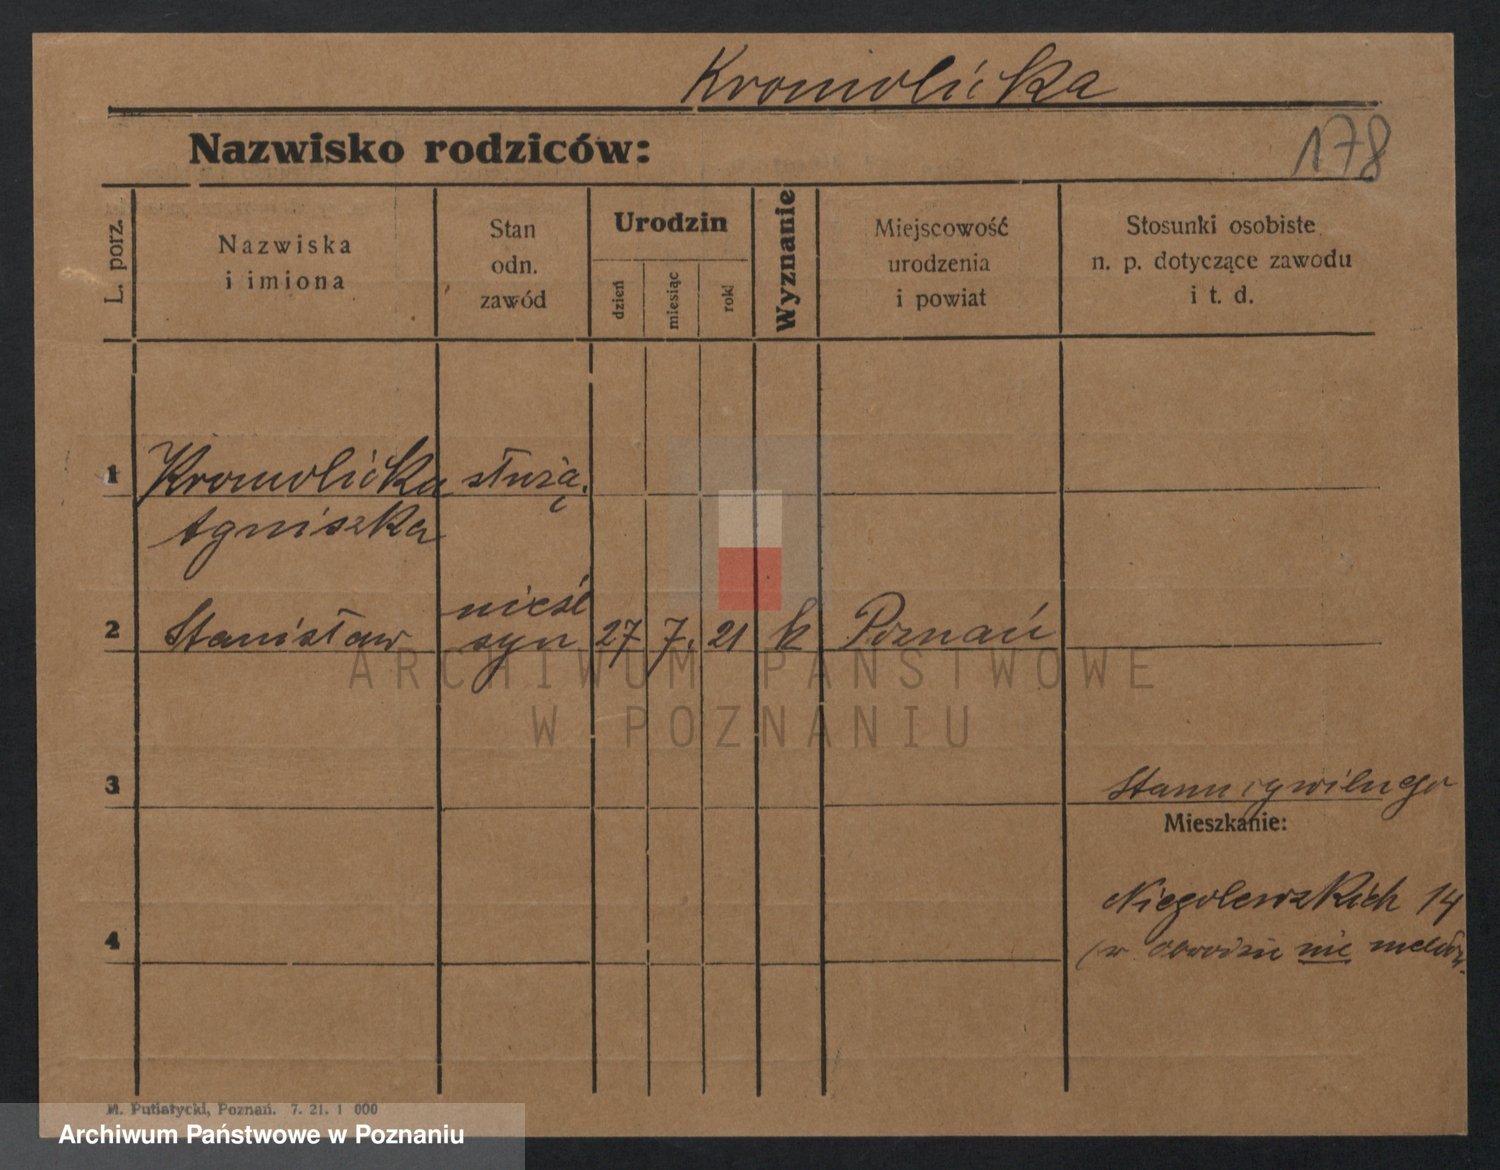 Kromolicka
Nazwisko rodziców:
178
L. porz.
Nazwiska
i imiona
Stan
odn.
zawód
Urodzin
dzień
miesiąc
rok
Wyznanie
Miejscowość
urodzenia
i powiat
Stosunki osobiste
n. p. dotyczące zawodu
i t. d.
1 Kromolicka służą.
Agniszka
2 Stanisław nieśl syn 27 7. 21 k Poznań
ARCHIWUM PAŃSTWOWE
W POZNANIU
3 Stanu cywilnego
Mieszkanie:
Niegolewskich 14
4 (w obwodzie nie meldow.
M. Putiatycki, Poznań. 7. 21. 1 000
Archiwum Państwowe w Poznaniu